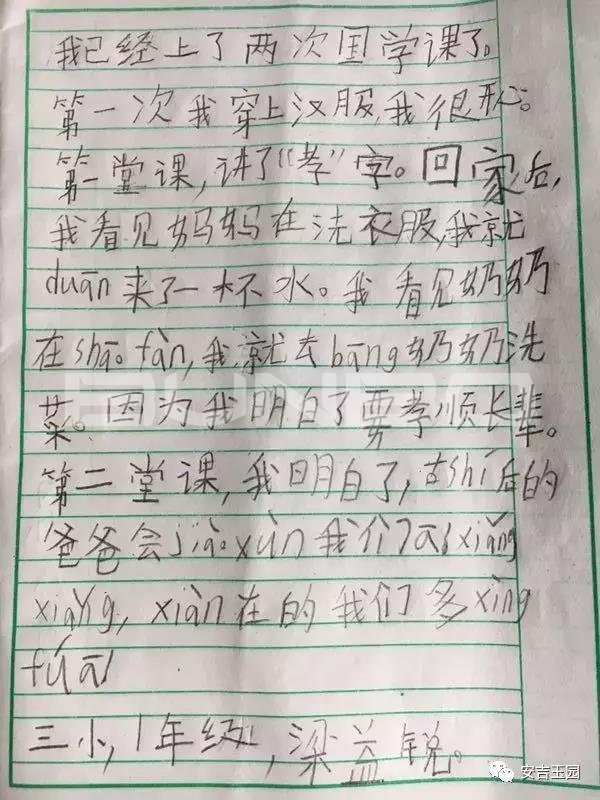 我已经上了两次国学课了。
第一次我穿上汉服,我很开心。
第一堂课,讲了“孝”字。回家后,
我看见妈妈在洗衣服,我就
duān来了一杯水。我看见奶奶
在shāo fàn,我就去bāng奶奶洗
菜。因为我明白了要孝顺长辈。
第二堂课,我明白了,古shí后的
爸爸会jiào xùn我们 xiǎng
xiǎng, xiàn在的我们多xìng
fú ā!
三小,1年级,梁益锐。
安吉王园